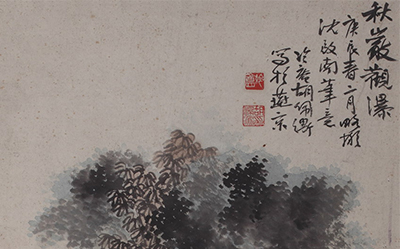 秋巖觀瀑
庚辰春二月略擬
沈啟南筆意
冷庵胡佩衡
寫於燕京